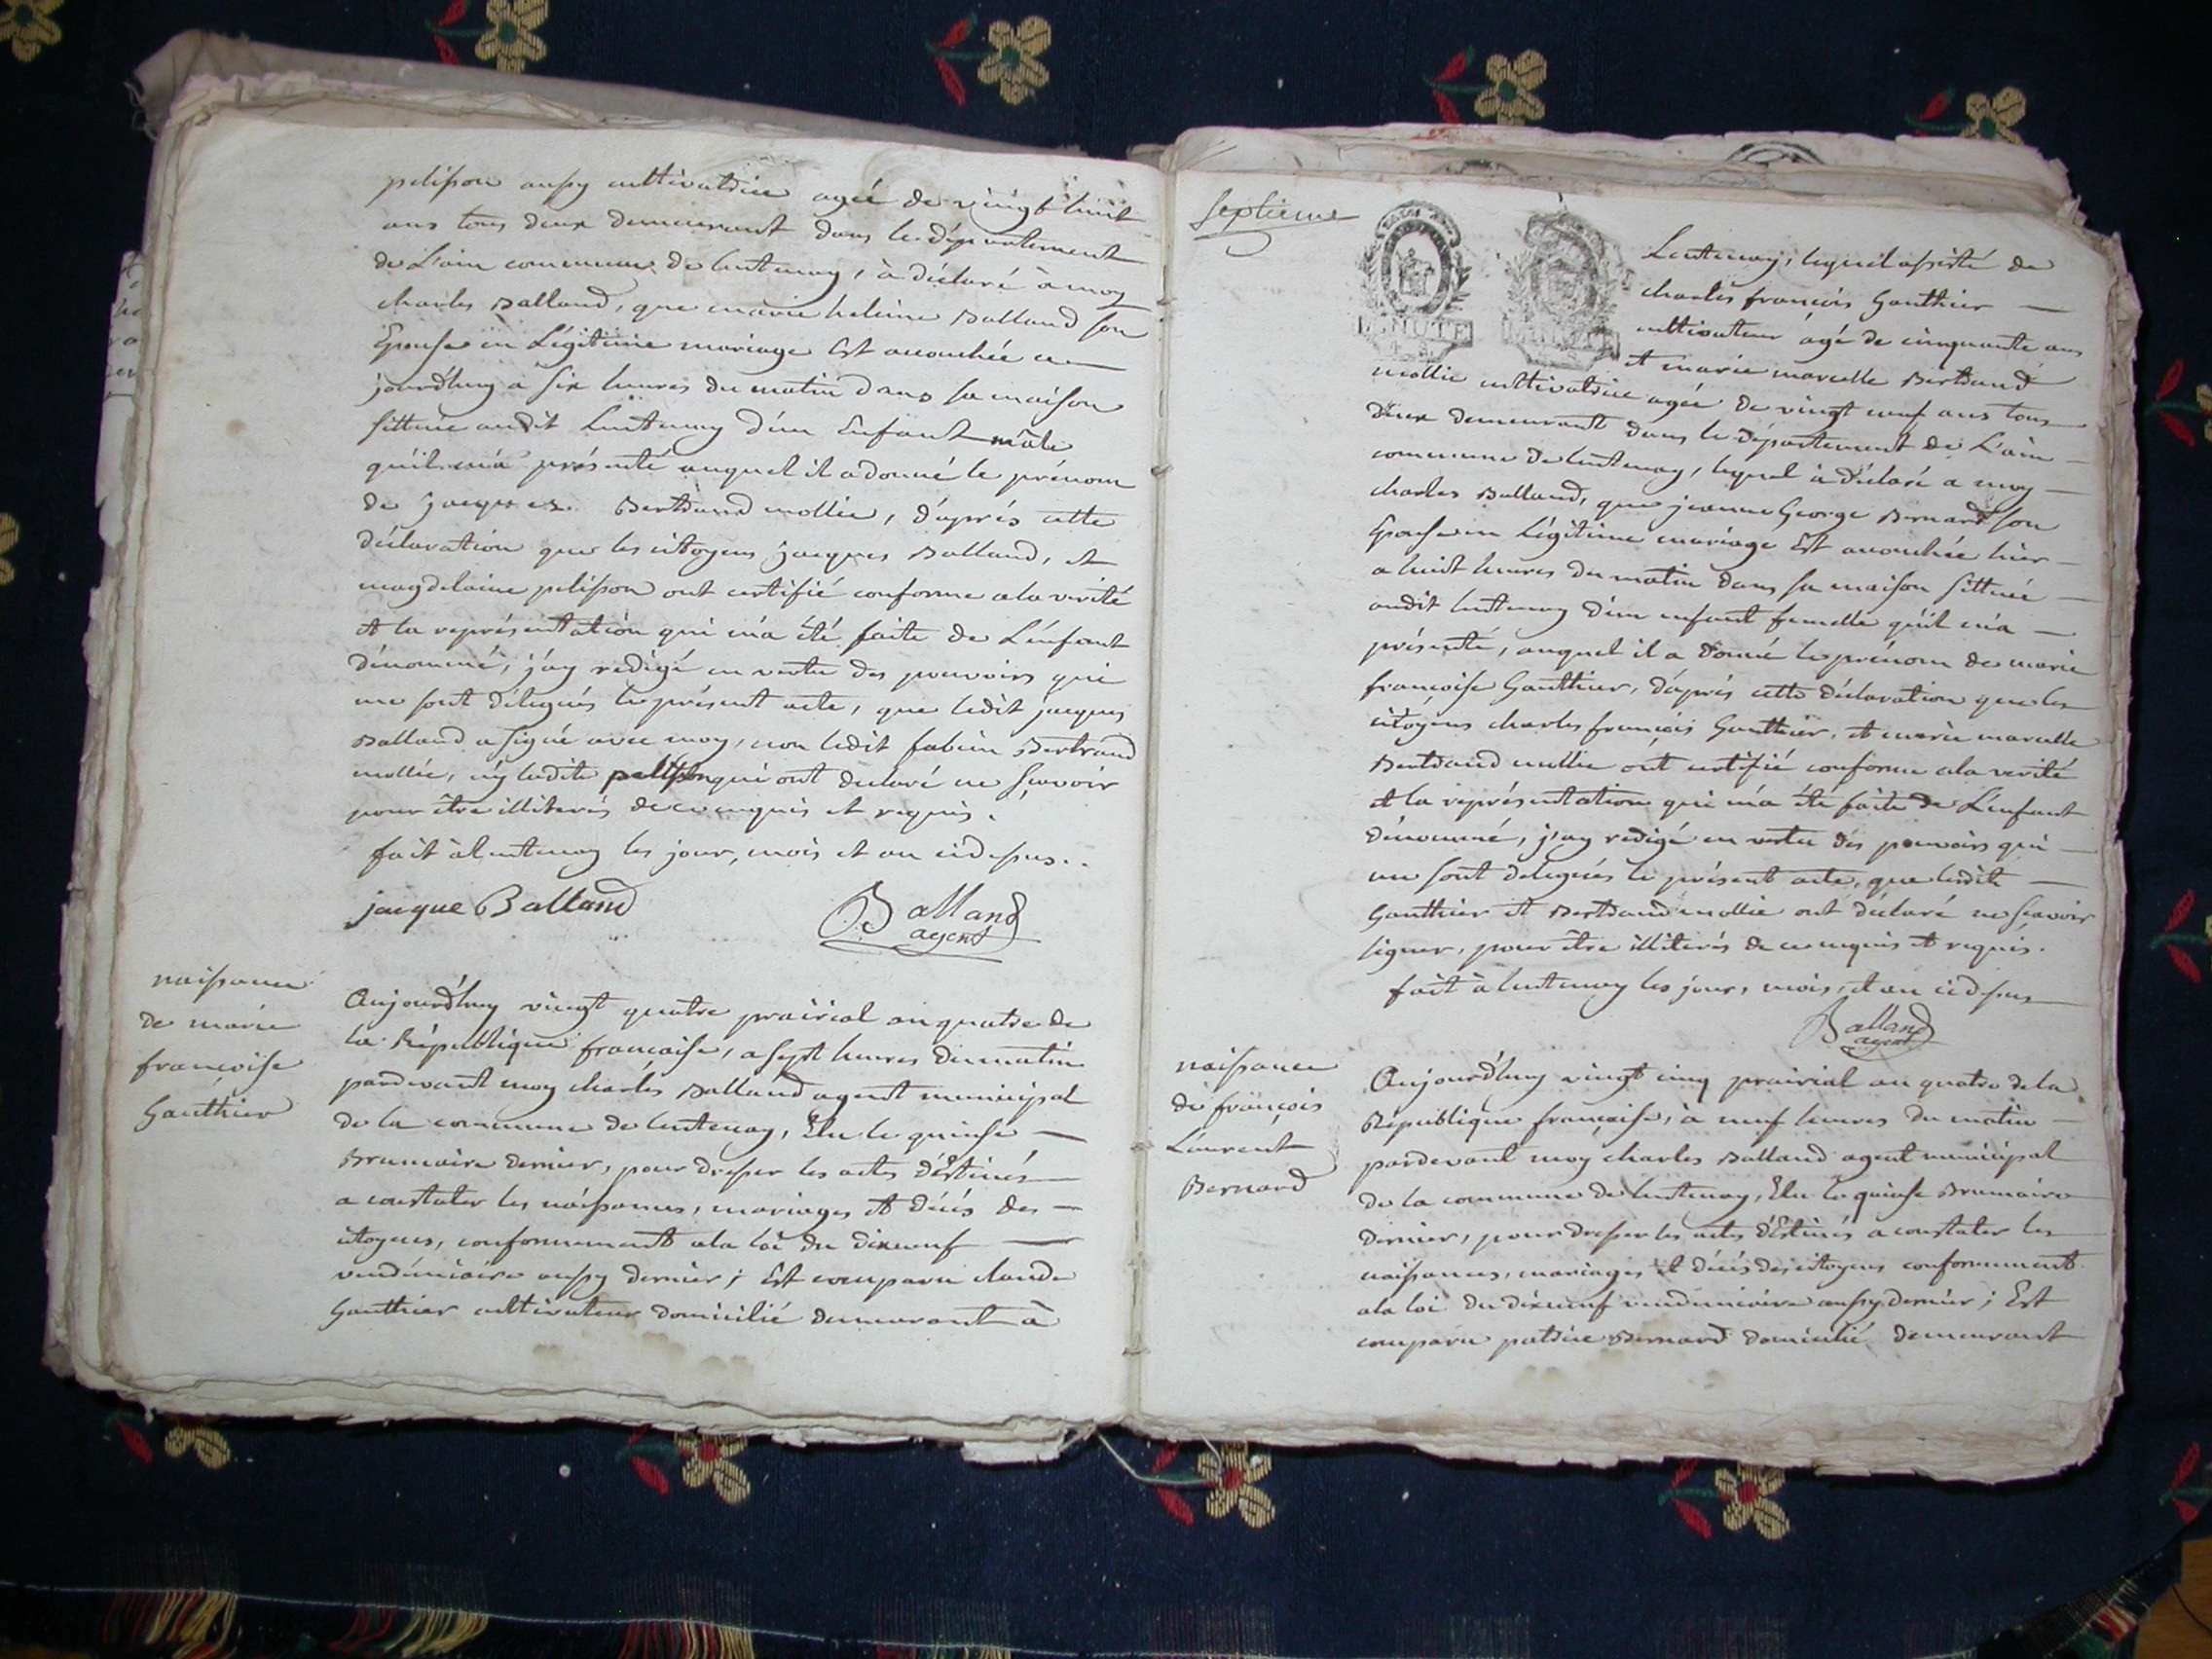 pelisson aussy cultivatrice agée de vingt huit
ans tous deux demeurant dans le département
de L'ain commune de lentenay, à déclaré à moy
charles Balland, que marie heleine Balland son
Epouse en Légitime mariage Est accouchée ce
jourd'huy a six heures du matin dans sa maison
sittuée audit Lentenay d'un Enfant mâle
qu'il m'a présenté auquel il a donné le prénom
de jacques Bertrand mollie, d'après cette
déclaration que les citoyens jacques Balland, et
magdelaine pelisson ont certifié conforme a la verité
et la représentation qui m'a été faite de L'enfant
dénommé, j'ay redigé en vertu des pouvoirs qui
me sont délegués le présent acte, que ledit jacques
Balland a signé avec moy, non ledit fabien Bertrand
mollie, n'y ladite pelisson qui ont declaré ne sçavoir
pour être illiterés de ce enquis et requis.
fait à lentenay les jour, mois et an cidessus..
jacque Balland
Balland
agent
naissance
de marie
françoise
Gauthier
Aujourd'huy vingt quatre prairial an quatre de
la République française, a sept heures du matin
pardevant moy charles Balland agent municipal
de la commune de lentenay, Elu le quinse
Brumaire dernier, pour dresser les actes déstinés
a constater les naissances, mariages et décès des
citoyens, conformement a la loi du dixneuf
vendémiaire aussy dernier; Est comparu claude
Gauthier cultivateur domicilié demeurant à
septieme
MINUTE
Lentenay, lequel assisté de
charles françois Gauthier
cultivateur agé de cinquante ans
et marie marcelle Bertrand
mollie cultivatrice agée de vingt neuf ans tous
deux demeurant dans le département de L'ain
commune de lentenay, lequel à déclaré a moy
charles Balland, que jeanne George Bernard son
Epouse en Légitime mariage Est accouchée hier
a huit heures du matin dans sa maison sittuée
audit lentenay d'un enfant femelle qu'il m'a
présenté, auquel il a donné le prénom de marie
françoise Gauthier, d'après cette déclaration que les
citoyens charles françois Gauthier, et marie marcelle
Bertrand mollie ont certifié conforme a la verité
et la représentation qui m'a été faite de L'enfant
dénommé, j'ay redigé en vertu des pouvoirs qui
me sont delegués le présent acte, que lesdits
Gauthier et Bertrand mollie ont déclaré ne sçavoir
signer, pour être illiterés de ce enquis et requis.
fait à lentenay les jour, mois, et an cidessus
Balland
agent
naissance
de françois
Laurent
Bernard
Aujourd'huy vingt cinq prairial an quatre de la
République française, à neuf heures du matin
pardevant moy charles Balland agent municipal
de la commune de lentenay, Elu le quinse Brumaire
dernier, pour dresser les actes déstinés a constater les
naissances, mariages et décès des citoyens conformement
a la loi du dixneuf vendemiaire aussy dernier; Est
comparu patrice Bernard domicilié demeurant